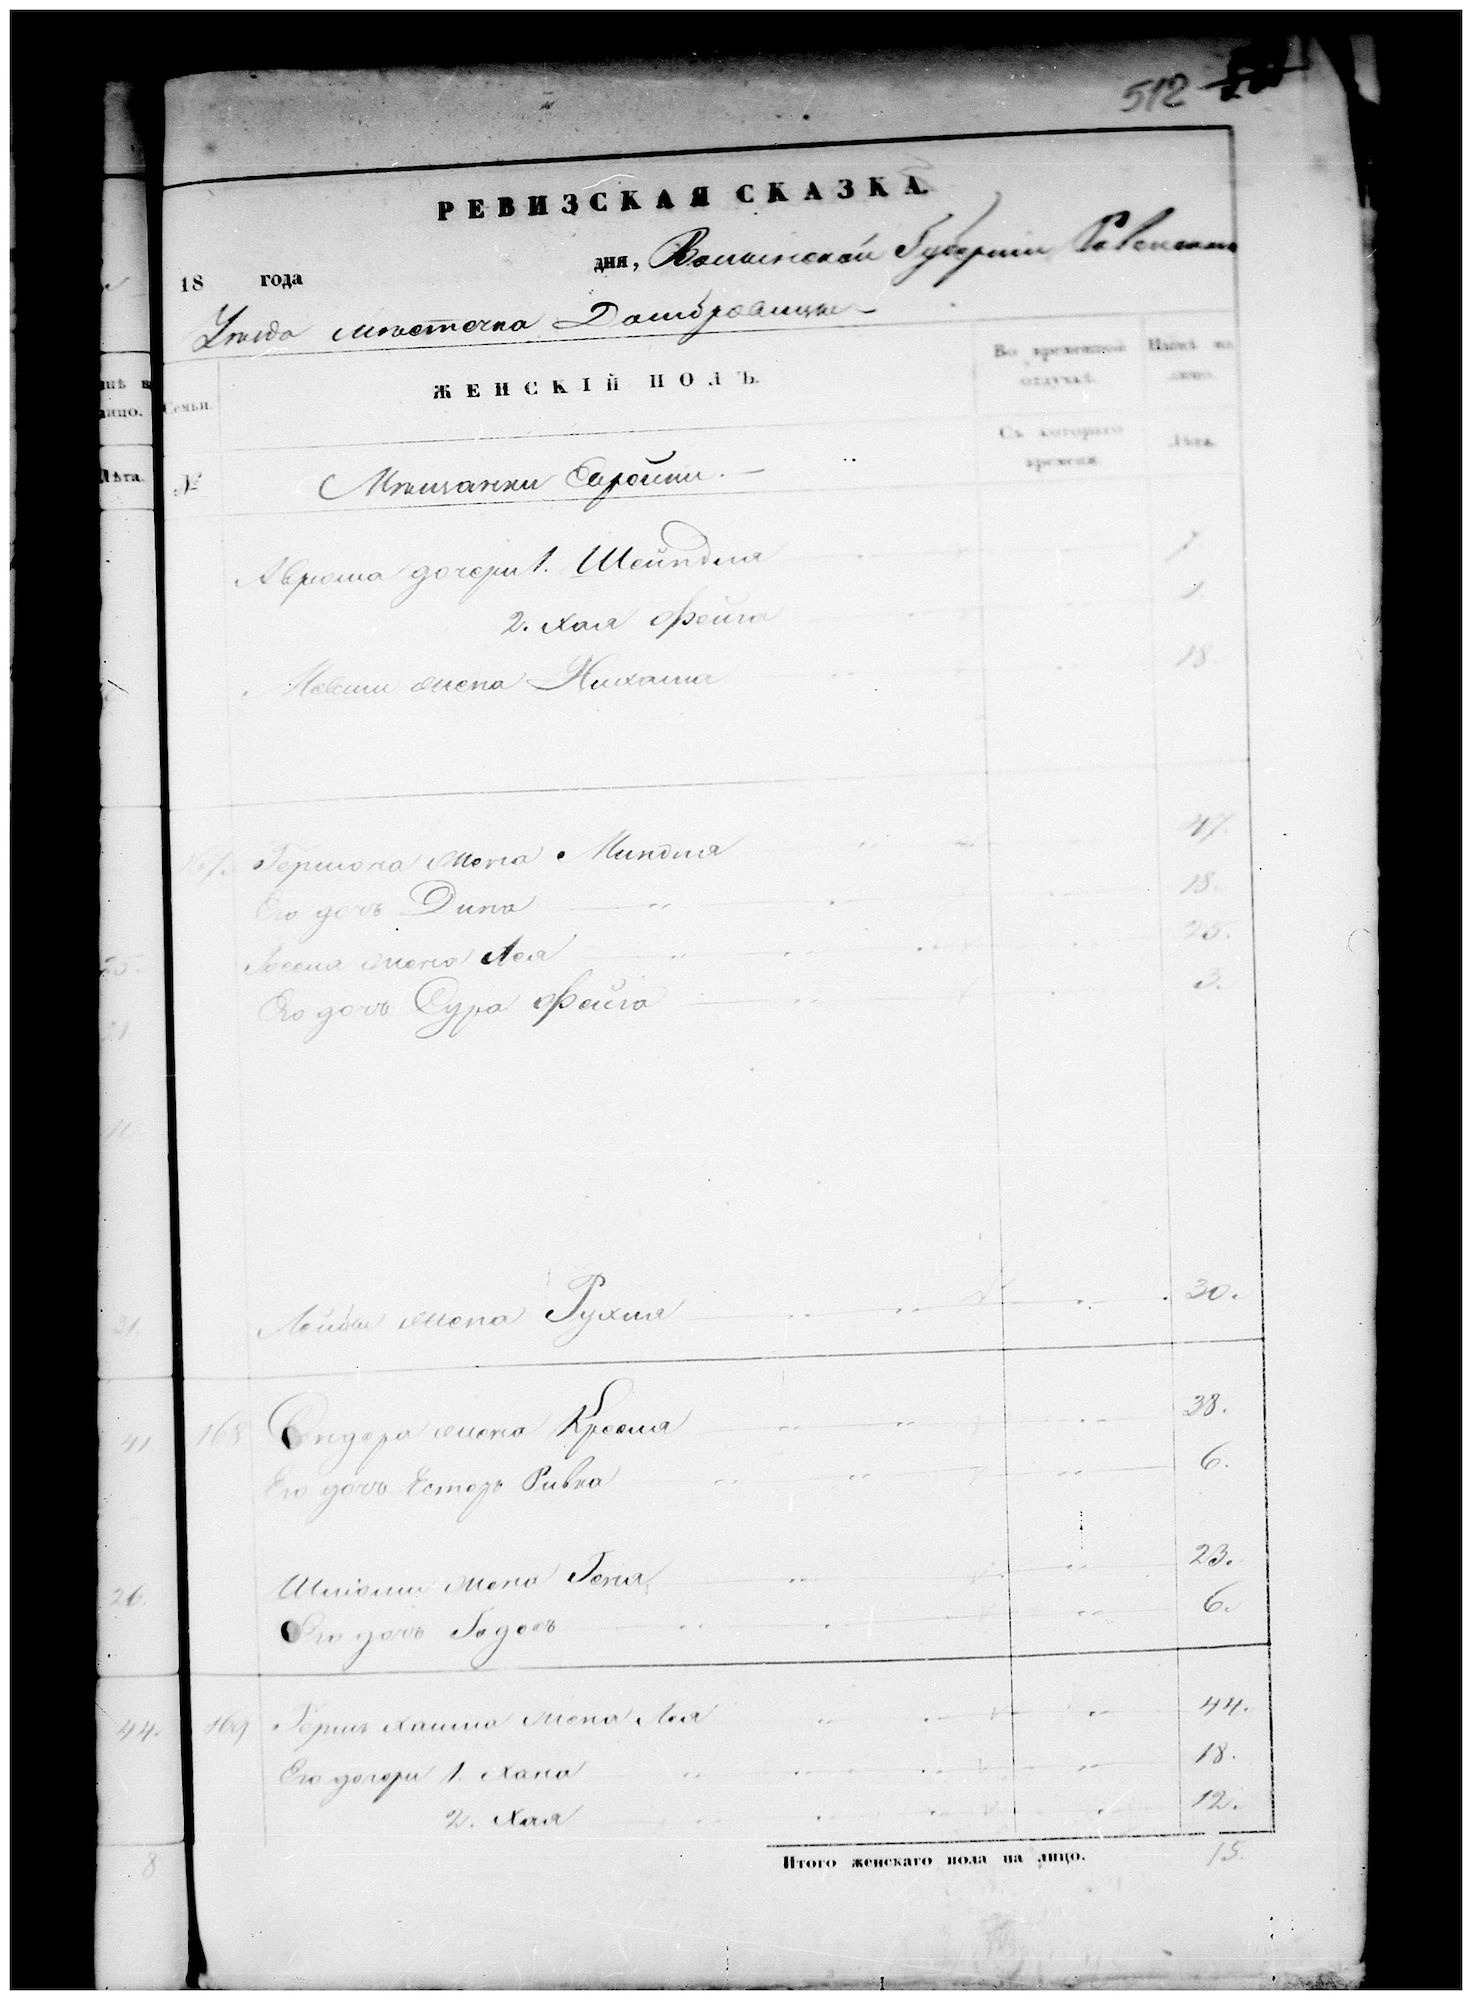 512
РЕВИЗСКАЯ СКАЗКА
18 года дня, Волынской Губернии Ровенскаго
Уезда местечка Домбровицы
нѣ на лицо.
Лѣта.
Семьи.
№
ЖЕНСКІЙ ПОЛЪ.
Во временной отлучкѣ.
Съ котораго времени
Нынѣ на лицо.
Лѣта.
Мѣщанки Евреики. —
Аврома дочери 1. Шейндля 7.
2. Хая Фейга 1.
Мовши жена Нихама 18.
167. Гершона жена Миндля 47.
Его дочь Дина 18.
Иосея жена Лея 25.
Его дочь Сура Фейга 3.
Лейбы жена Рухля 30.
168 Сендера жена Крейля 38.
Его дочь Естеръ Ривка 6.
Шліомы жена Геня 23.
Его дочь Годесъ 6.
169 Гершъ Хаима жена Лея 44.
Его дочери 1. Хана 18.
2. Хая 12.
Итого женскаго пола на лицо. 15.
25.
21.
41.
26.
44.
8